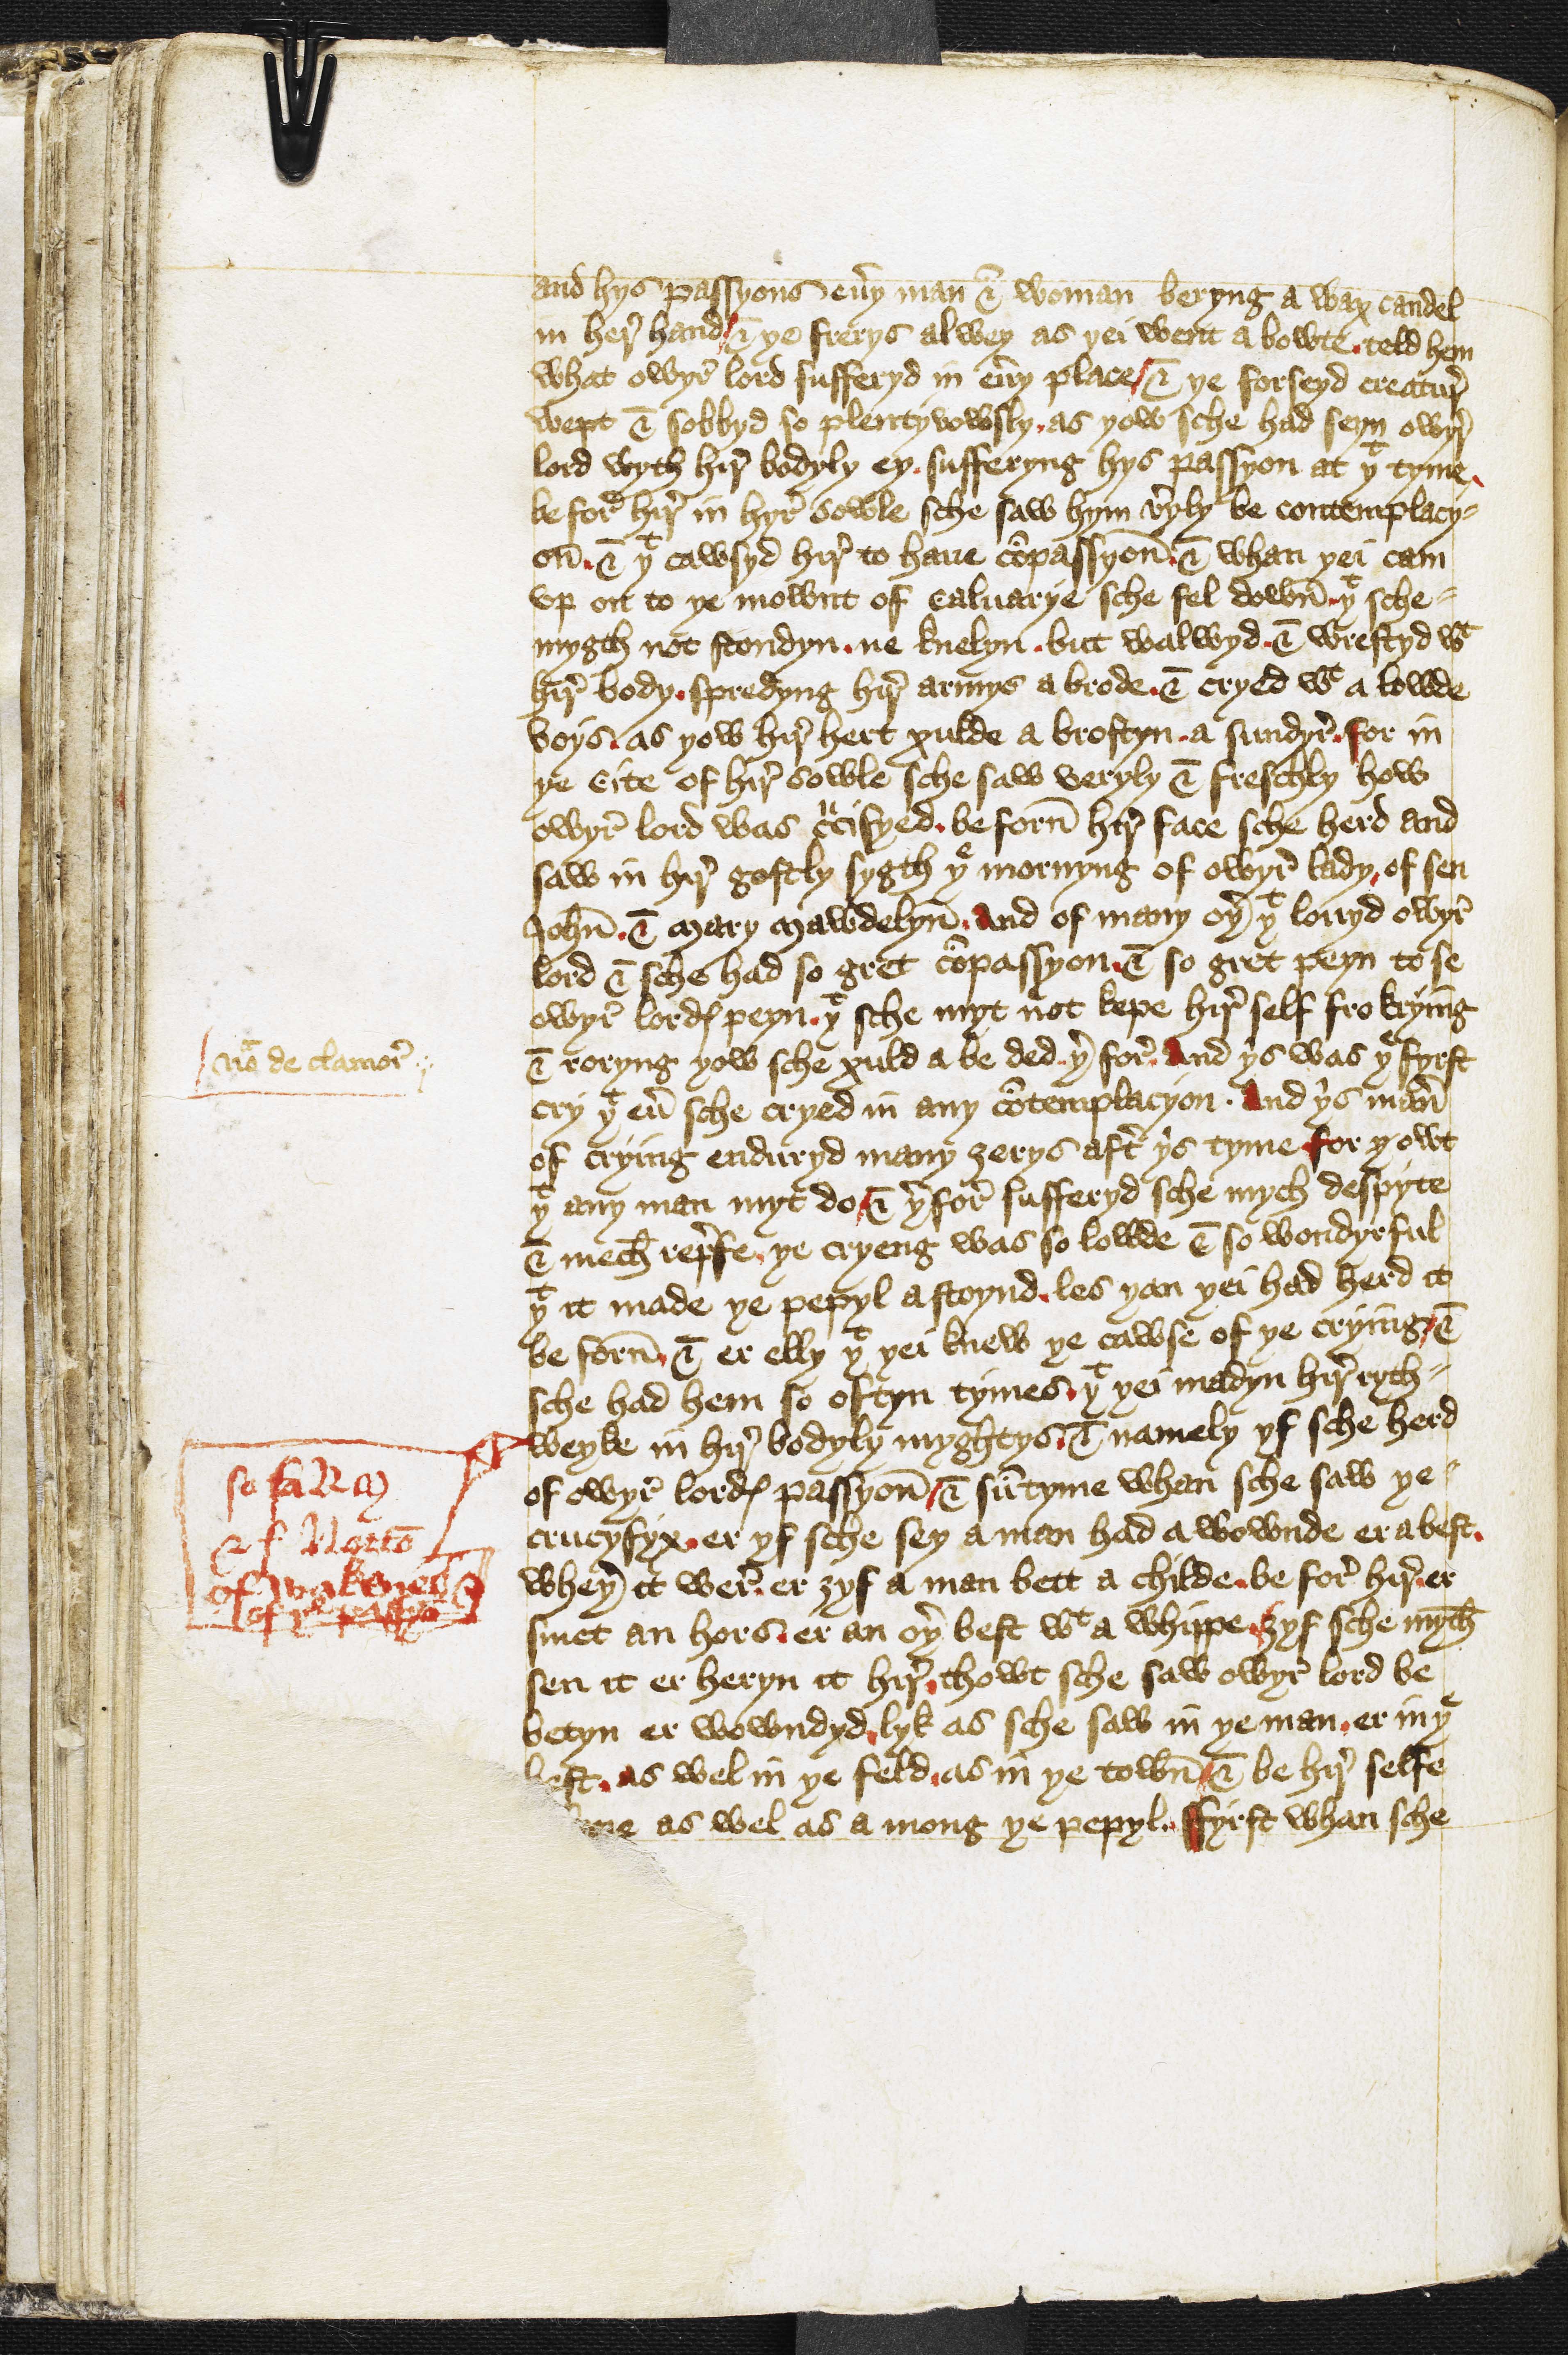 and hys passyons eu̾y man & woman beryng a wax candel
in her̾ hand / & ye frerys alwey as yei went a bowte . teld hem
what owyr̾ lord sufferyd in eu̾y place / & ye forseyd creatur̾
wept & sobbyd so plentyvowsly . as yow sche had seyn owyr̾
lord wyth hir̾ bodyly ey . sufferyng hys passyon at yᵗ tyme .
be for̾ hir̾ in hyr̾ sowle sche saw hym v̾yly be contemplacy⸗
on̄ . & yᵗ cawsyd hir̾ to haue cōpassyon̄ . & whan yei cam
vp on to ye mownt of caluarye sche fel down̄ . yᵗ sche⸗
mygth not stondyn . ne knelyn . but walwyd . & wrestyd wᵗ
hir̾ body . spredyng hir̾ armys a brode . & cryed wᵗ a lowde
voys . as yow hir̾ hert xulde a brostyn . a sundyr̾ . for in
ye cite of hir̾ sowle sche saw veryly & freschly how
owyr̾ lord was cᵘcifyed . be forn̄ hir̾ face sche herd and
saw in hir̾ gostly sygth yᵉ mornyng of owyr̾ lady . of sen
John̄ . & mary mawdelyn̄ . And of many oy̾ yᵗ louyd owyr̾
lord & sche had so gret cōpassyon . & so gret peyn to se
owyr̾ lordꝭ peyn . yᵗ sche myt not kepe hir̾ self fro krying
& roryng yow sche xuld a be ded . y̾ for̾ . And yⁱs was yᵉ fyrst
noᵃ de clamor̾
cry yᵗ eu̾ sche cryed in any cōtemplacyon . And yⁱs man̾
of crying enduryd many ȝerys aft̾ yⁱs tyme for y owt
yᵗ any man myt do / & y̾ for̾ sufferyd sche mych despyte
& mech̄ repᵉfe . ye cryeng was so lowde & so wondyrful
yᵗ it made ye pepyl astoynd . les yan yei had herd it
be forn̄ . & er elly yᵗ yei knew ye cawse of ye crying / &
sche had hem so oftyn tymes . yᵗ yei madyn hir̾ ryth⸗
weyke in hir̾ bodyly myghtys . & namely yf sche herd
of owyr̾ lordꝭ passyon̄ / & sūtyme whan sche saw ye⸗
crucyfyx . er yf sche sey a man had a wownde er a best .
so fa RM
& f Norto
of Wakenes
of yᵉ passyo
whey̾ it wer̾ . er ȝyf a man bett a childe . be for̾ hir̾ . er
smet an hors . er an oy̾ best wᵗ a whippe . ȝyf sche myth̄
sen it er heryn it hir̾ . thowt sche saw owyr̾ lord be
betyn er wowndyd . lyk as sche saw in ye man . er in yᵉ
best . as wel in ye feld . as in ye town̄ / & be hir̾ selfe
as wel as a mong ye pepyl . ffyrst whan sche